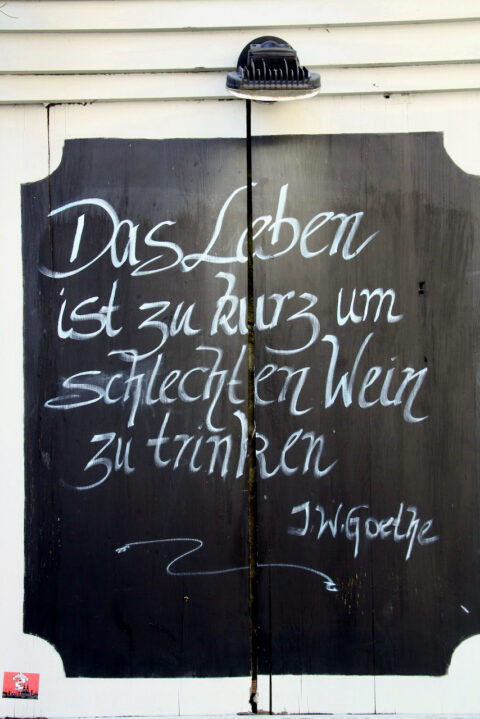 Das Leben
ist zu kurz um
schlechten Wein
zu trinken
J.W.Goethe